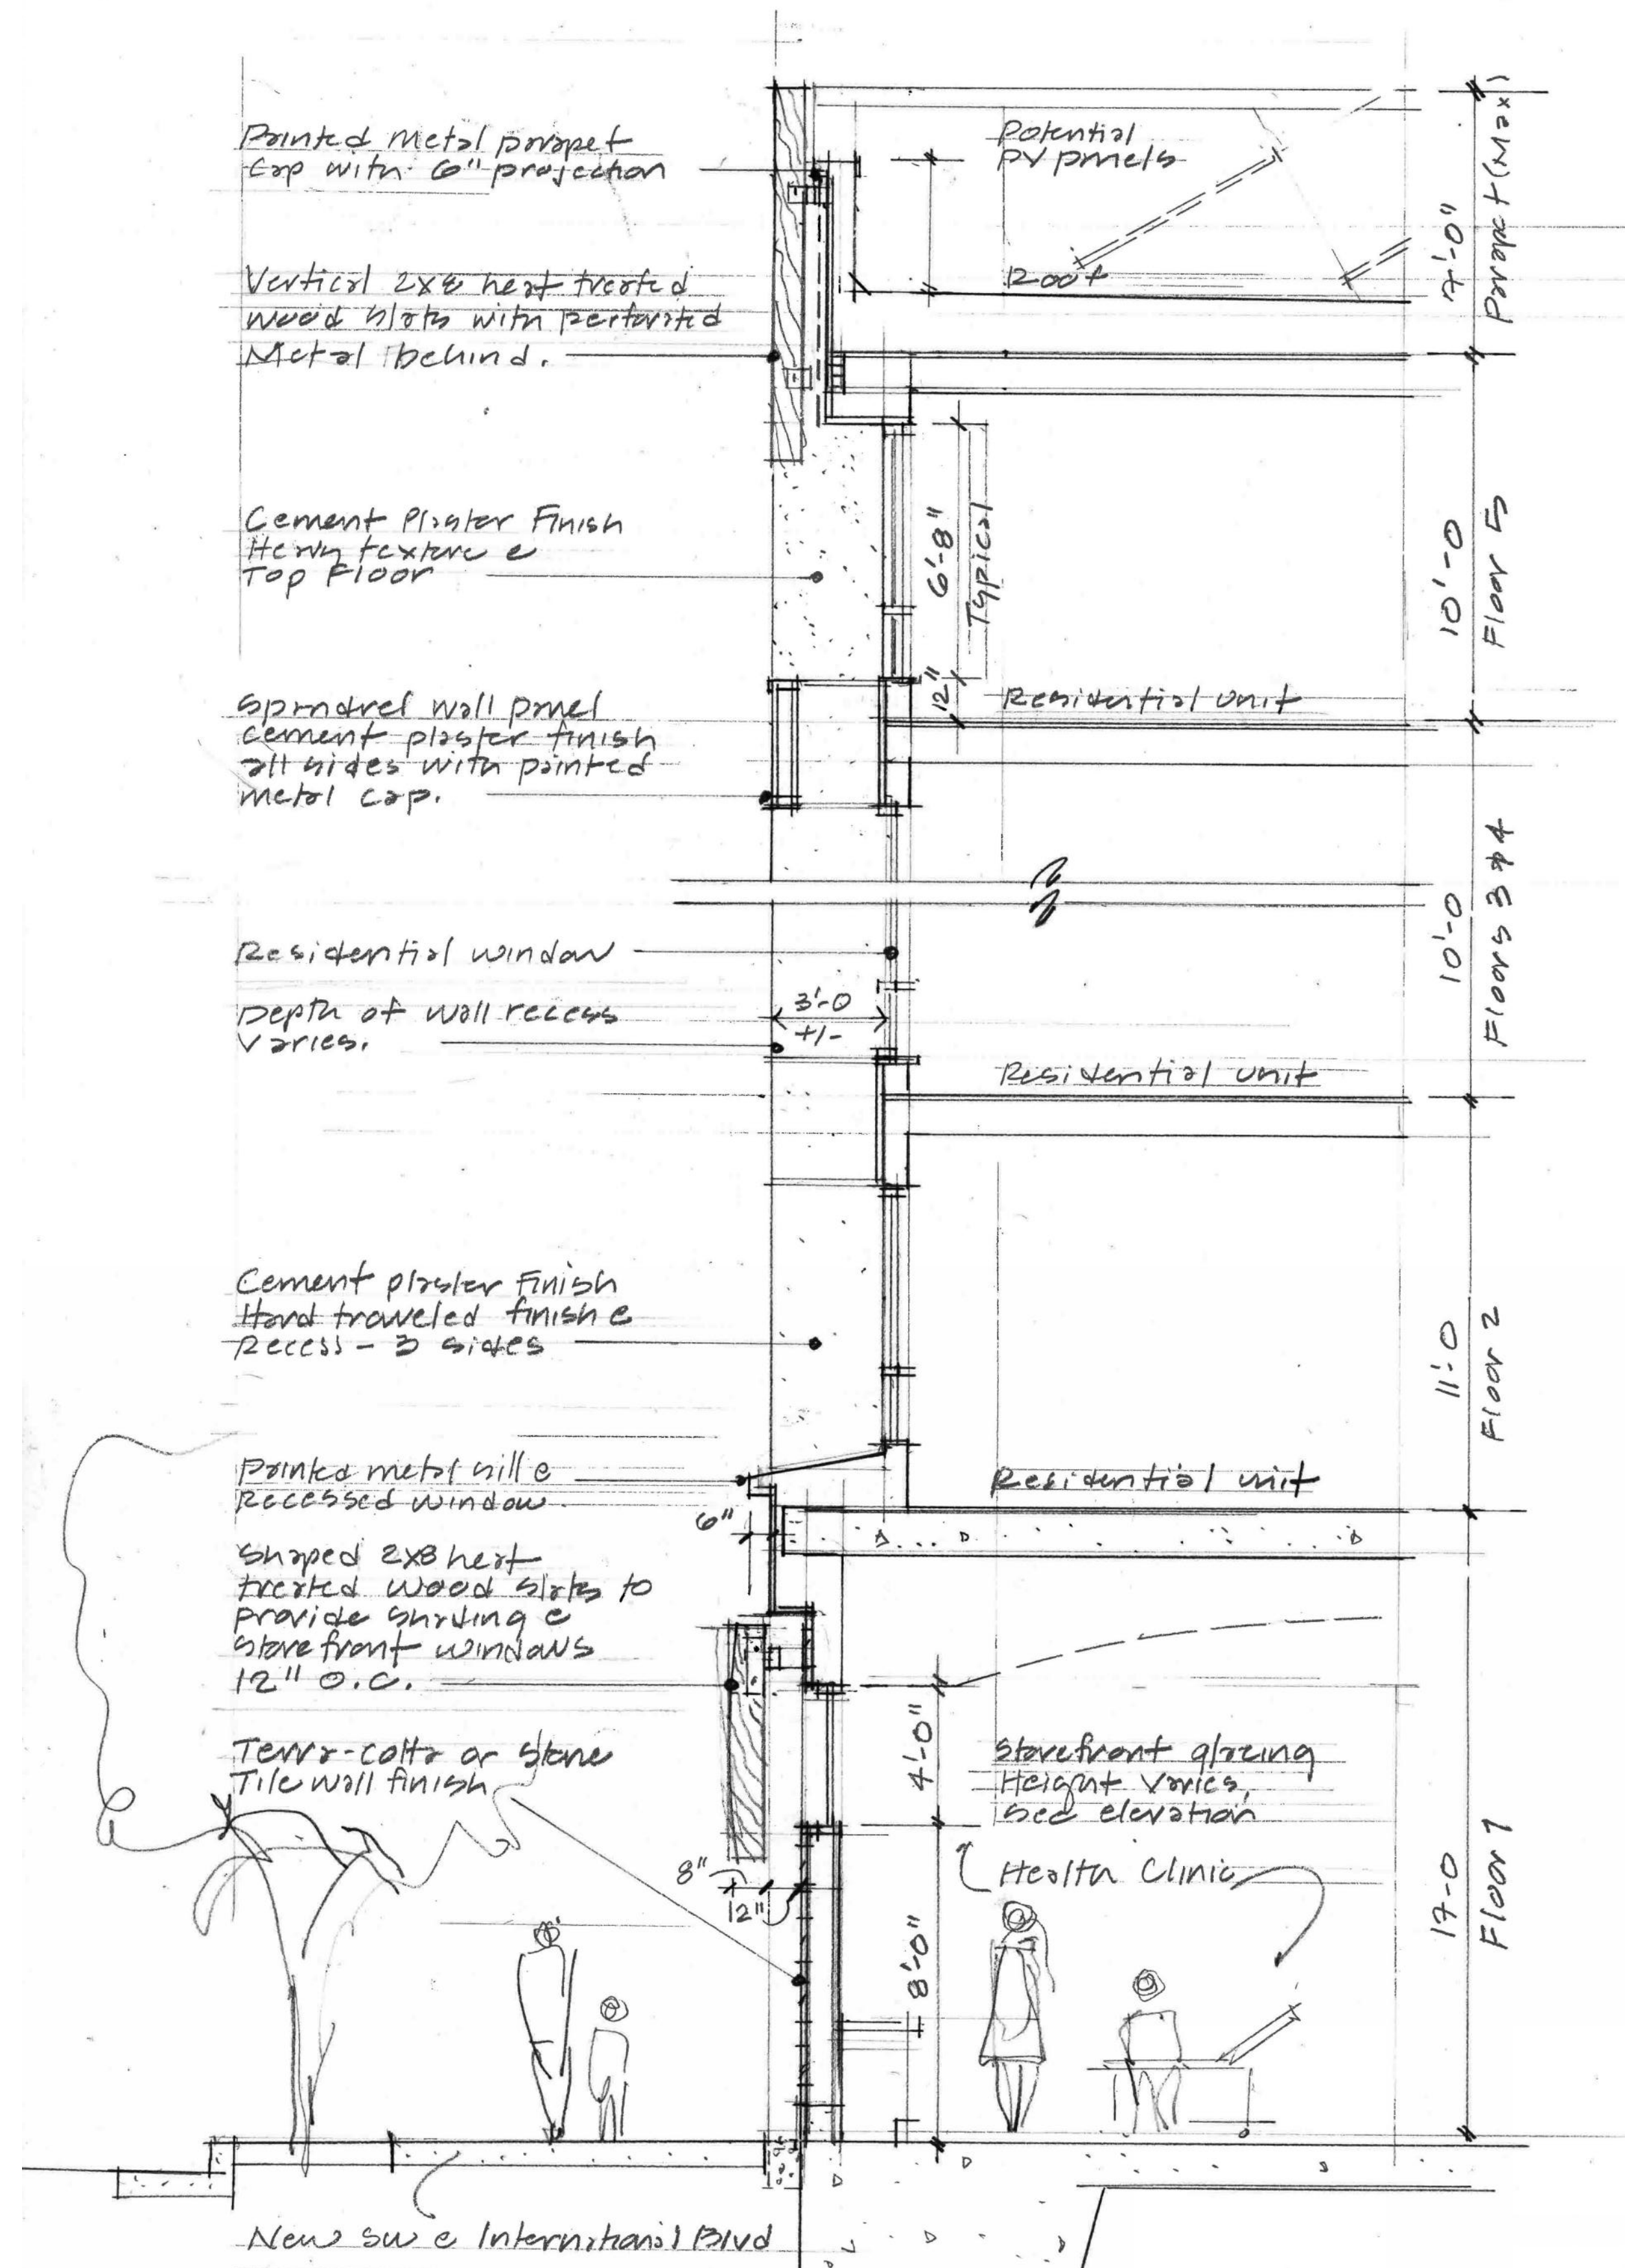 Painted metal parapet
cap with 6" projection
Vertical 2x8 heat treated
wood slats with perforated
Metal behind.
Cement Plaster Finish
Heavy texture @
Top Floor
Spandrel wall panel
cement plaster finish
all sides with painted
metal cap.
Residential window
Depth of wall recess
varies.
Cement plaster Finish
Hard traveled finish @
Recess - 3 sides
Painted metal sill @
Recessed window
Shaped 2x8 heat
treated wood slats to
provide shading @
storefront windows
12" O.C.
Terra-cotta or stone
Tile wall finish
New SW @ International Blvd
Potential
PV panels
Roof
6'-8"
Typical
12"
Residential unit
3'-0
+/-
Residential unit
Residential unit
6"
4'-0"
Storefront glazing
Height varies,
see elevation
Health Clinic
8"
12"
8'-0"
7'-0"
Parapet (Max)
10'-0
Floor 5
10'-0
Floors 3 & 4
11'-0
Floor 2
17-0
Floor 1